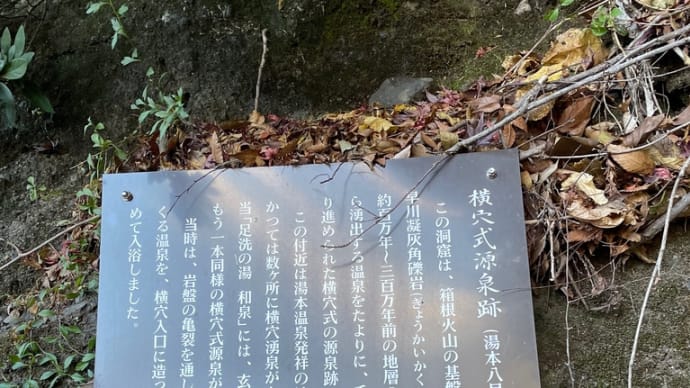 横穴式源泉跡（湯本八号
この洞窟は、箱根火山の基盤
早川凝灰角礫岩（ぎょうかいかく
約百万年～三百万年前の地層
ら湧出する温泉をたよりに、
り進められた横穴式の源泉跡
この付近は湯本温泉発祥の
かつては数ヶ所に横穴湧泉が
当「足洗の湯 和泉」には、玄
もう一本同様の横穴式源泉が
当時は、岩盤の亀裂を通し
くる温泉を、横穴入口に造っ
めて入浴しました。